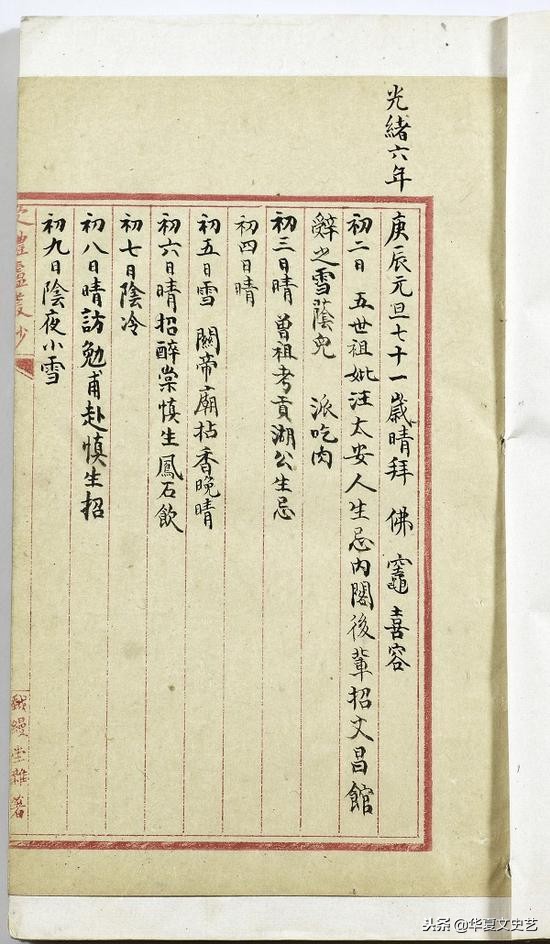 光緒六年
庚辰元旦七十一歲晴拜 佛 竈 喜容
初二日 五世祖妣汪太安人生忌內閣後輩招文昌館
辭之雪蔭兒 派吃肉
初三日晴 曾祖考貢湖公生忌
初四日晴
初五日雪 關帝廟拈香晚晴
初六日晴招醉棠慎生鳳石飲
初七日陰冷
初八日晴訪勉甫赴慎生招
初九日陰夜小雪
禮廬叢抄
堂雜著
头条@华夏文史艺